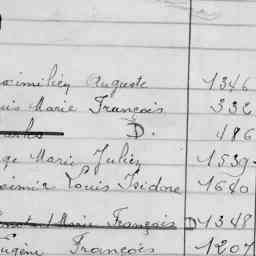 ximilien Auguste 1346
uis Marie François 332
D. 486
ge Marie Julien 1539
simir Louis Isidore 1680
Marie François D 1348
Eugène François 1207